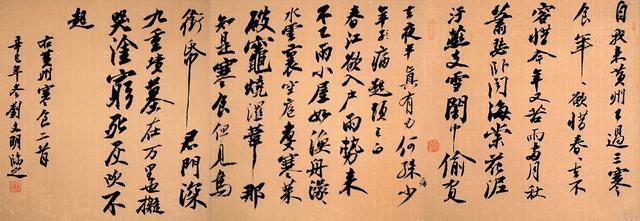 自我來黃州已過三寒
食年〻欲惜春〻去不
容惜今年又苦雨兩月秋
蕭瑟卧聞海棠花泥
汙燕支雪闇中偷負
去夜半真有力何殊少
年子病起頭已白
春江欲入戶雨勢來
不已雨小屋如漁舟濛〻
水雲裏空庖煮寒菜
破竈燒濕葦那
知是寒食但見烏
銜帋君門深
九重墳墓在万里也擬
哭塗窮死灰吹不
起
右黃州寒食二首
辛巳年冬劉文明臨之